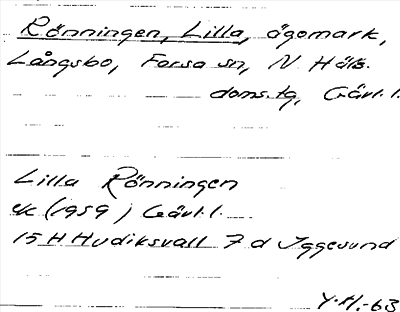 Rönningen, Lilla, ägomark,
Långsbo, Forsa sn, N Häls.
doms.tg, Gävl.l.
Lilla Rönningen
ek (1959) Gävl.l.
15 H Hudiksvall 7 d Iggesund
Y.H.-63